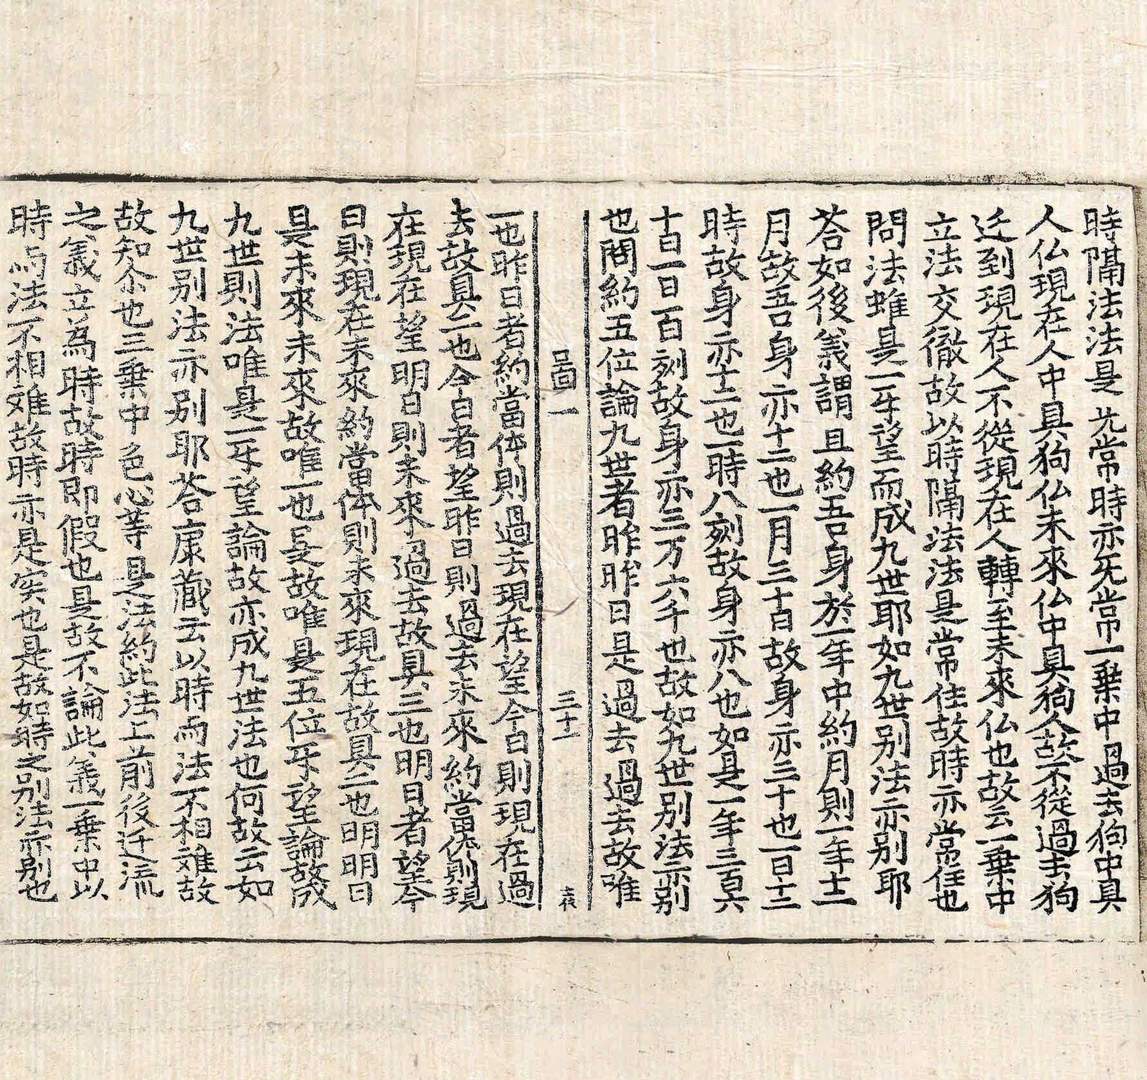 時隔法法是旡常時亦旡常一乗中過去狗中具
人仏現在人中具狗仏未來仏中具狗人故不從過去狗
迁到現在人不從現在人轉至未來仏也故云一乗中
立法交徹故以時隔法法是常住故時亦常住也
問法雖是一牙望而成九世耶如九世别法亦别耶
荅如後義謂且約吾身於一年中約月則一年十二
月故吾身亦十二也一月三十日故身亦三十也一日十二
時故身亦十二也一時八刻故身亦八也如是一年三百六
十日一日百刻故身亦三万六千也故如九世别法亦别
也問約五位論九世者昨昨日是過去過去故唯
啚一 三十一 夜
一也昨日者約當体則過去現在望今日則現在過
去故具二也今日者望昨日則過去未來約當体則現
在現在望明日則未來過去故具三也明日者望今
日則現在未來約當体則未來現在故具二也明明日
是未來未來故唯一也是故唯是五位牙望論故成
九世則法唯是一牙望論故亦成九世法也何故云如
九世别法亦别耶荅康藏云以時与法不相離故
故知尒也三乗中色心等是法約此法上前後迁流
之義立為時故時即假也是故不論此義一乗中以
時与法不相離故時亦是実也是故如時之别法亦别也